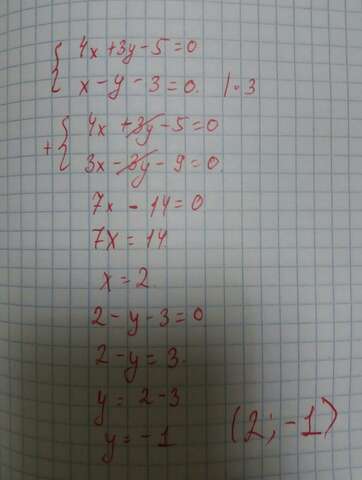 { 4x + 3y - 5 = 0
x - y - 3 = 0. | · 3
+ { 4x + 3y - 5 = 0
3x - 3y - 9 = 0.
7x - 14 = 0
7x = 14
x = 2.
2 - y - 3 = 0
2 - y = 3.
y = 2 - 3
y = -1 (2; -1)